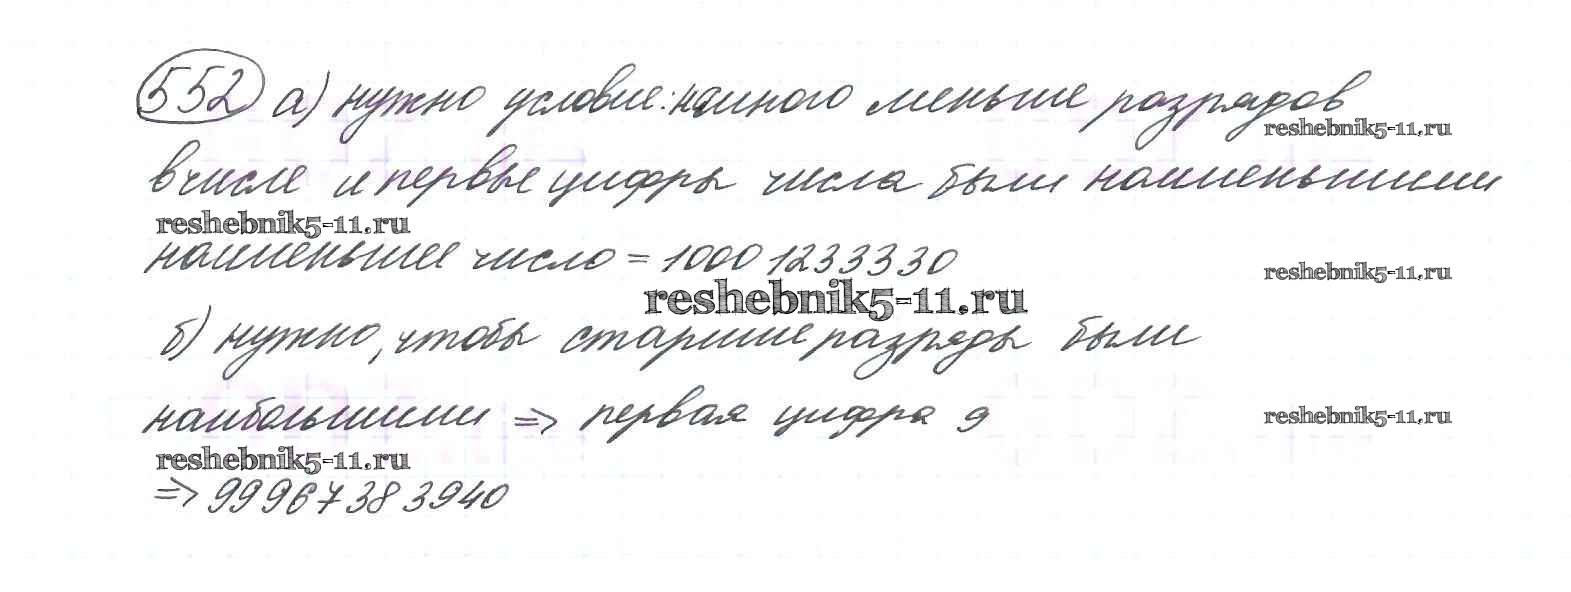 552 а) нужно условие: намного меньше разрядов
reshebnik5-11.ru
в числе и первые цифры числа были наименьшими
reshebnik5-11.ru
наименьшее число = 10001233330
reshebnik5-11.ru
reshebnik5-11.ru
б) нужно, чтобы старшие разряды были
наибольшими => первая цифра 9
reshebnik5-11.ru
reshebnik5-11.ru
=> 99967383940